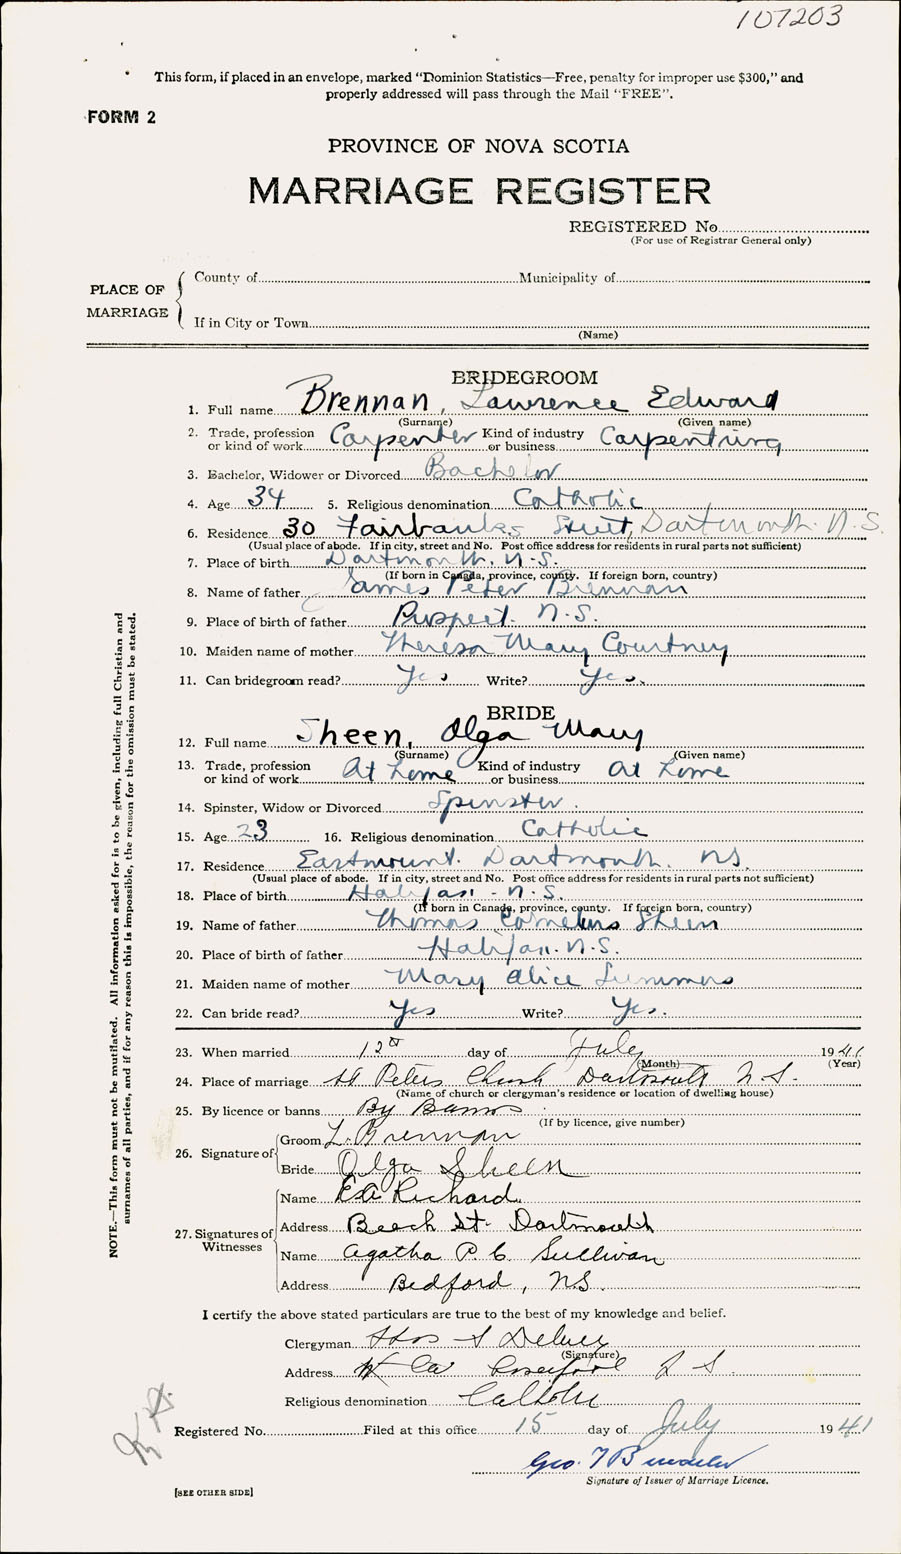 107203
This form, if placed in an envelope, marked "Dominion Statistics—Free, penalty for improper use $300," and
properly addressed will pass through the Mail "FREE".
FORM 2
PROVINCE OF NOVA SCOTIA
MARRIAGE REGISTER
REGISTERED No.
(For use of Registrar General only)
PLACE OF MARRIAGE
County of Municipality of
If in City or Town
(Name)
BRIDEGROOM
1. Full name Brennan, Lawrence Edward
(Surname) (Given name)
2. Trade, profession or kind of work Carpenter Kind of industry or business Carpentring
3. Bachelor, Widower or Divorced Bachelor
4. Age 34 5. Religious denomination Catholic
6. Residence 30 Fairbanks Street, Dartmouth. N.S.
(Usual place of abode. If in city, street and No. Post office address for residents in rural parts not sufficient)
7. Place of birth Dartmouth. N.S.
(If born in Canada, province, county. If foreign born, country)
8. Name of father James Peter Brennan
9. Place of birth of father Prospect. N.S.
10. Maiden name of mother Theresa Mary Courtney
11. Can bridegroom read? Yes Write? Yes.
BRIDE
12. Full name Sheen, Olga Mary
(Surname) (Given name)
13. Trade, profession or kind of work At home Kind of industry or business At home
14. Spinster, Widow or Divorced Spinster.
15. Age 23 16. Religious denomination Catholic
17. Residence Eastmount. Dartmouth. N.S.
(Usual place of abode. If in city, street and No. Post office address for residents in rural parts not sufficient)
18. Place of birth Halifax. N.S.
(If born in Canada, province, county. If foreign born, country)
19. Name of father Thomas Cornelius Sheen
20. Place of birth of father Halifax. N.S.
21. Maiden name of mother Mary Alice Summers
22. Can bride read? Yes Write? Yes.
23. When married 12th day of July 1941
(Month) (Year)
24. Place of marriage St. Peters Church Dartmouth N.S.
(Name of church or clergyman's residence or location of dwelling house)
25. By licence or banns By Banns
(If by licence, give number)
26. Signature of
Groom L. Brennan
Bride Olga Sheen
27. Signatures of Witnesses
Name E A Richard
Address Beech St. Dartmouth
Name Agatha P. C. Sullivan
Address Bedford, N.S.
I certify the above stated particulars are true to the best of my knowledge and belief.
Clergyman Thos
(Signature)
Address
Religious denomination Catholic
Registered No. Filed at this office 15 day of July 1941
Geo.
Signature of Issuer of Marriage Licence.
[SEE OTHER SIDE]
NOTE.—This form must not be mutilated. All information asked for is to be given, including full Christian and
surnames of all parties, and if for any reason this is impossible, the reason for the omission must be stated.